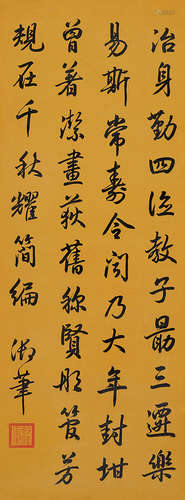 治身勤四德教子最三遷樂
易斯常壽令聞乃大年封坩
曾著潔畫荻舊稱賢彤管芳
規在千秋耀簡編 御筆